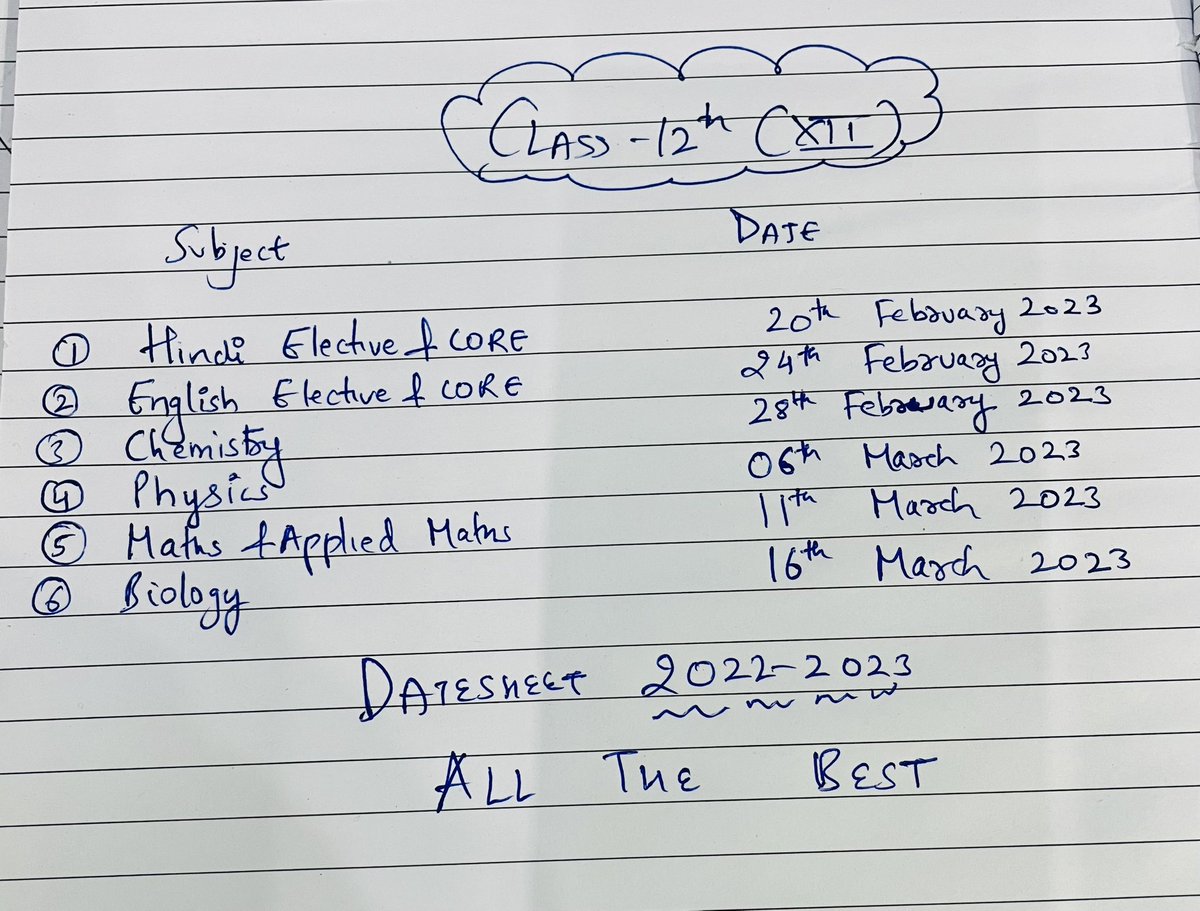 CLASS-12th (XII)
Subject DATE
① Hindi Elective & CORE 20th February 2023
② English Elective & CORE 24th February 2023
③ Chemistry 28th February 2023
④ Physics 06th March 2023
⑤ Maths & Applied Maths 11th March 2023
⑥ Biology 16th March 2023
DATESHEET 2022-2023
ALL THE BEST